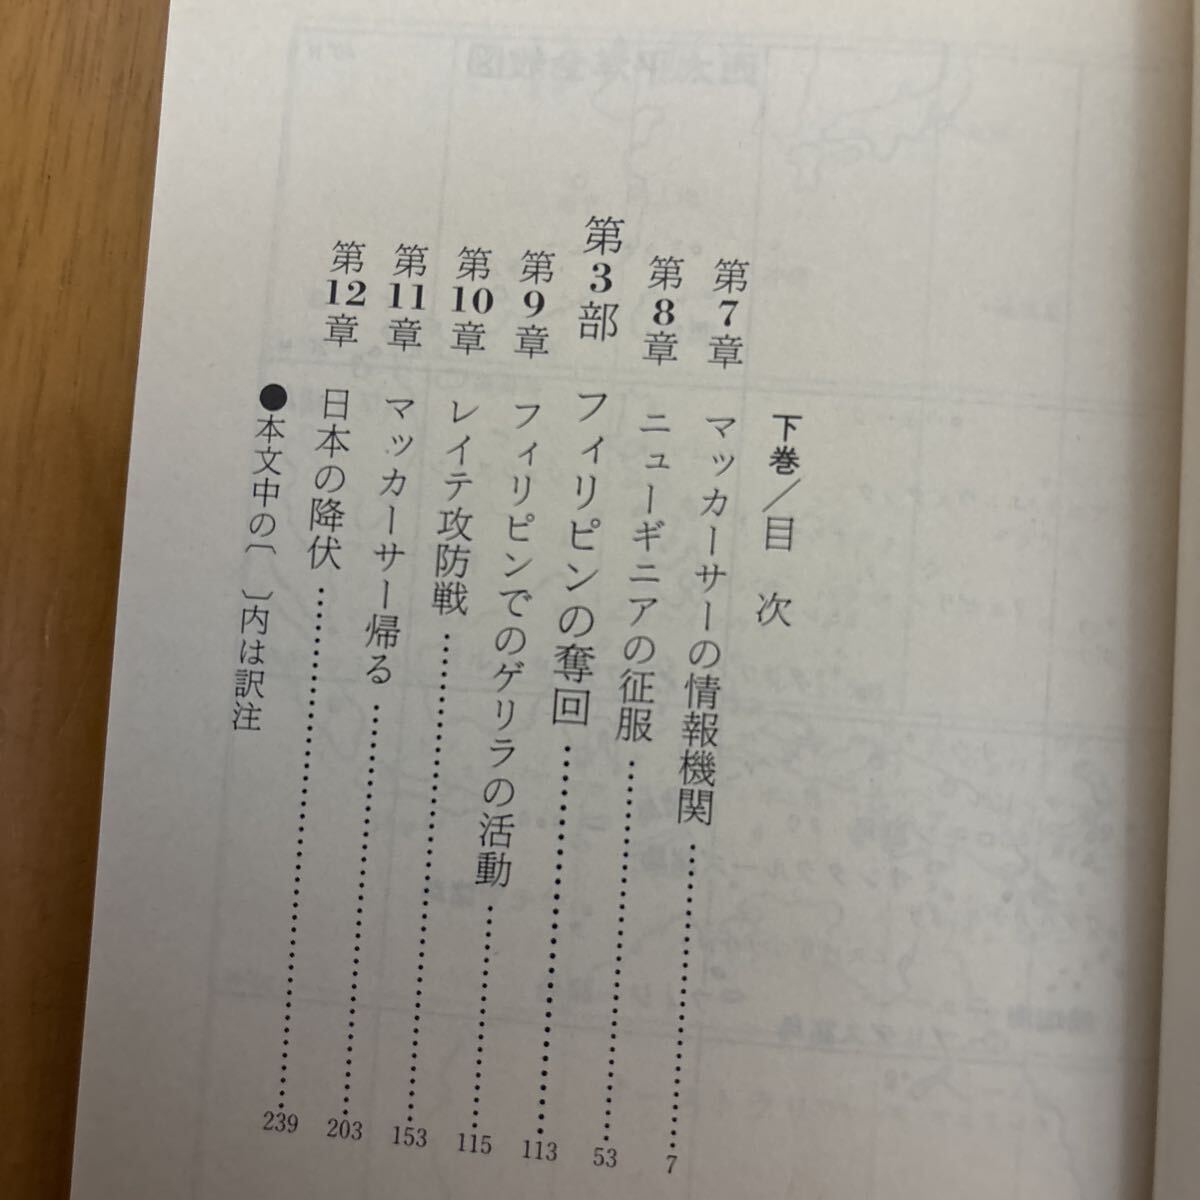 下巻/目次
第7章 マッカーサーの情報機関……7
第8章 ニューギニアの征服……53
第3部 フィリピンの奪回……113
第9章 フィリピンでのゲリラの活動……115
第10章 レイテ攻防戦……153
第11章 マッカーサー帰る……203
第12章 日本の降伏……239
●本文中の〔 〕内は訳注